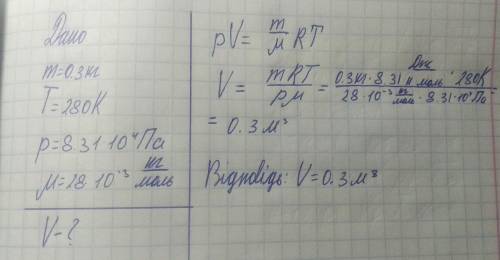 Дано
m=0.3кг
T=280К
p=8.31·10⁴Па
μ=28·10⁻³ кг/моль
V-?
pV= m/μ RT
V= mRT/pμ = 0.3кг·8.31 Дж/К моль·280К / 28·10⁻³ кг/моль·8.31·10⁴Па
= 0.3м³
Відповідь: V=0.3м³